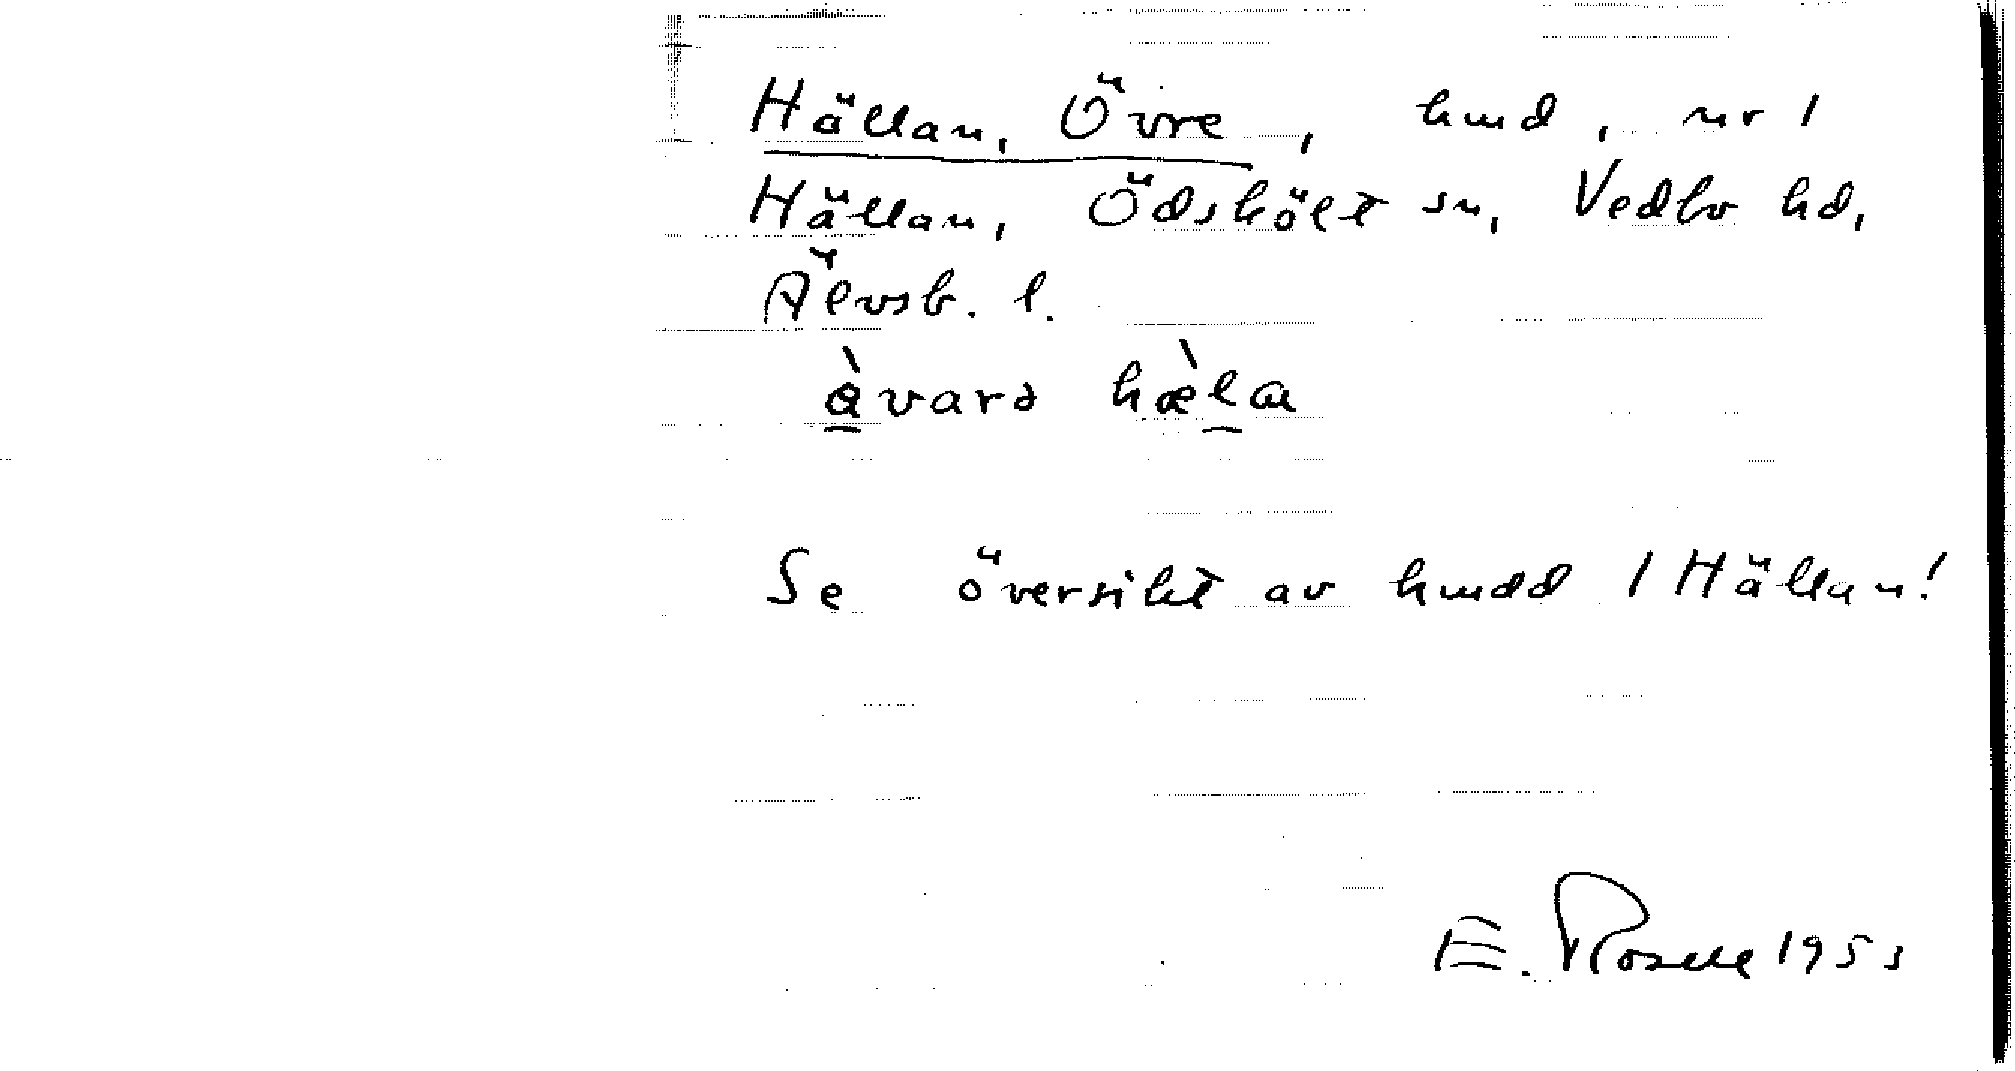 Hällan, Övre, hmd, nr 1
Hällan, Ödskölt sn, Vedbo hd,
Älvsb. l.
àvarə hæ̀la
Se översikt av hmdd 1 Hällan!
E. Rosell 1953